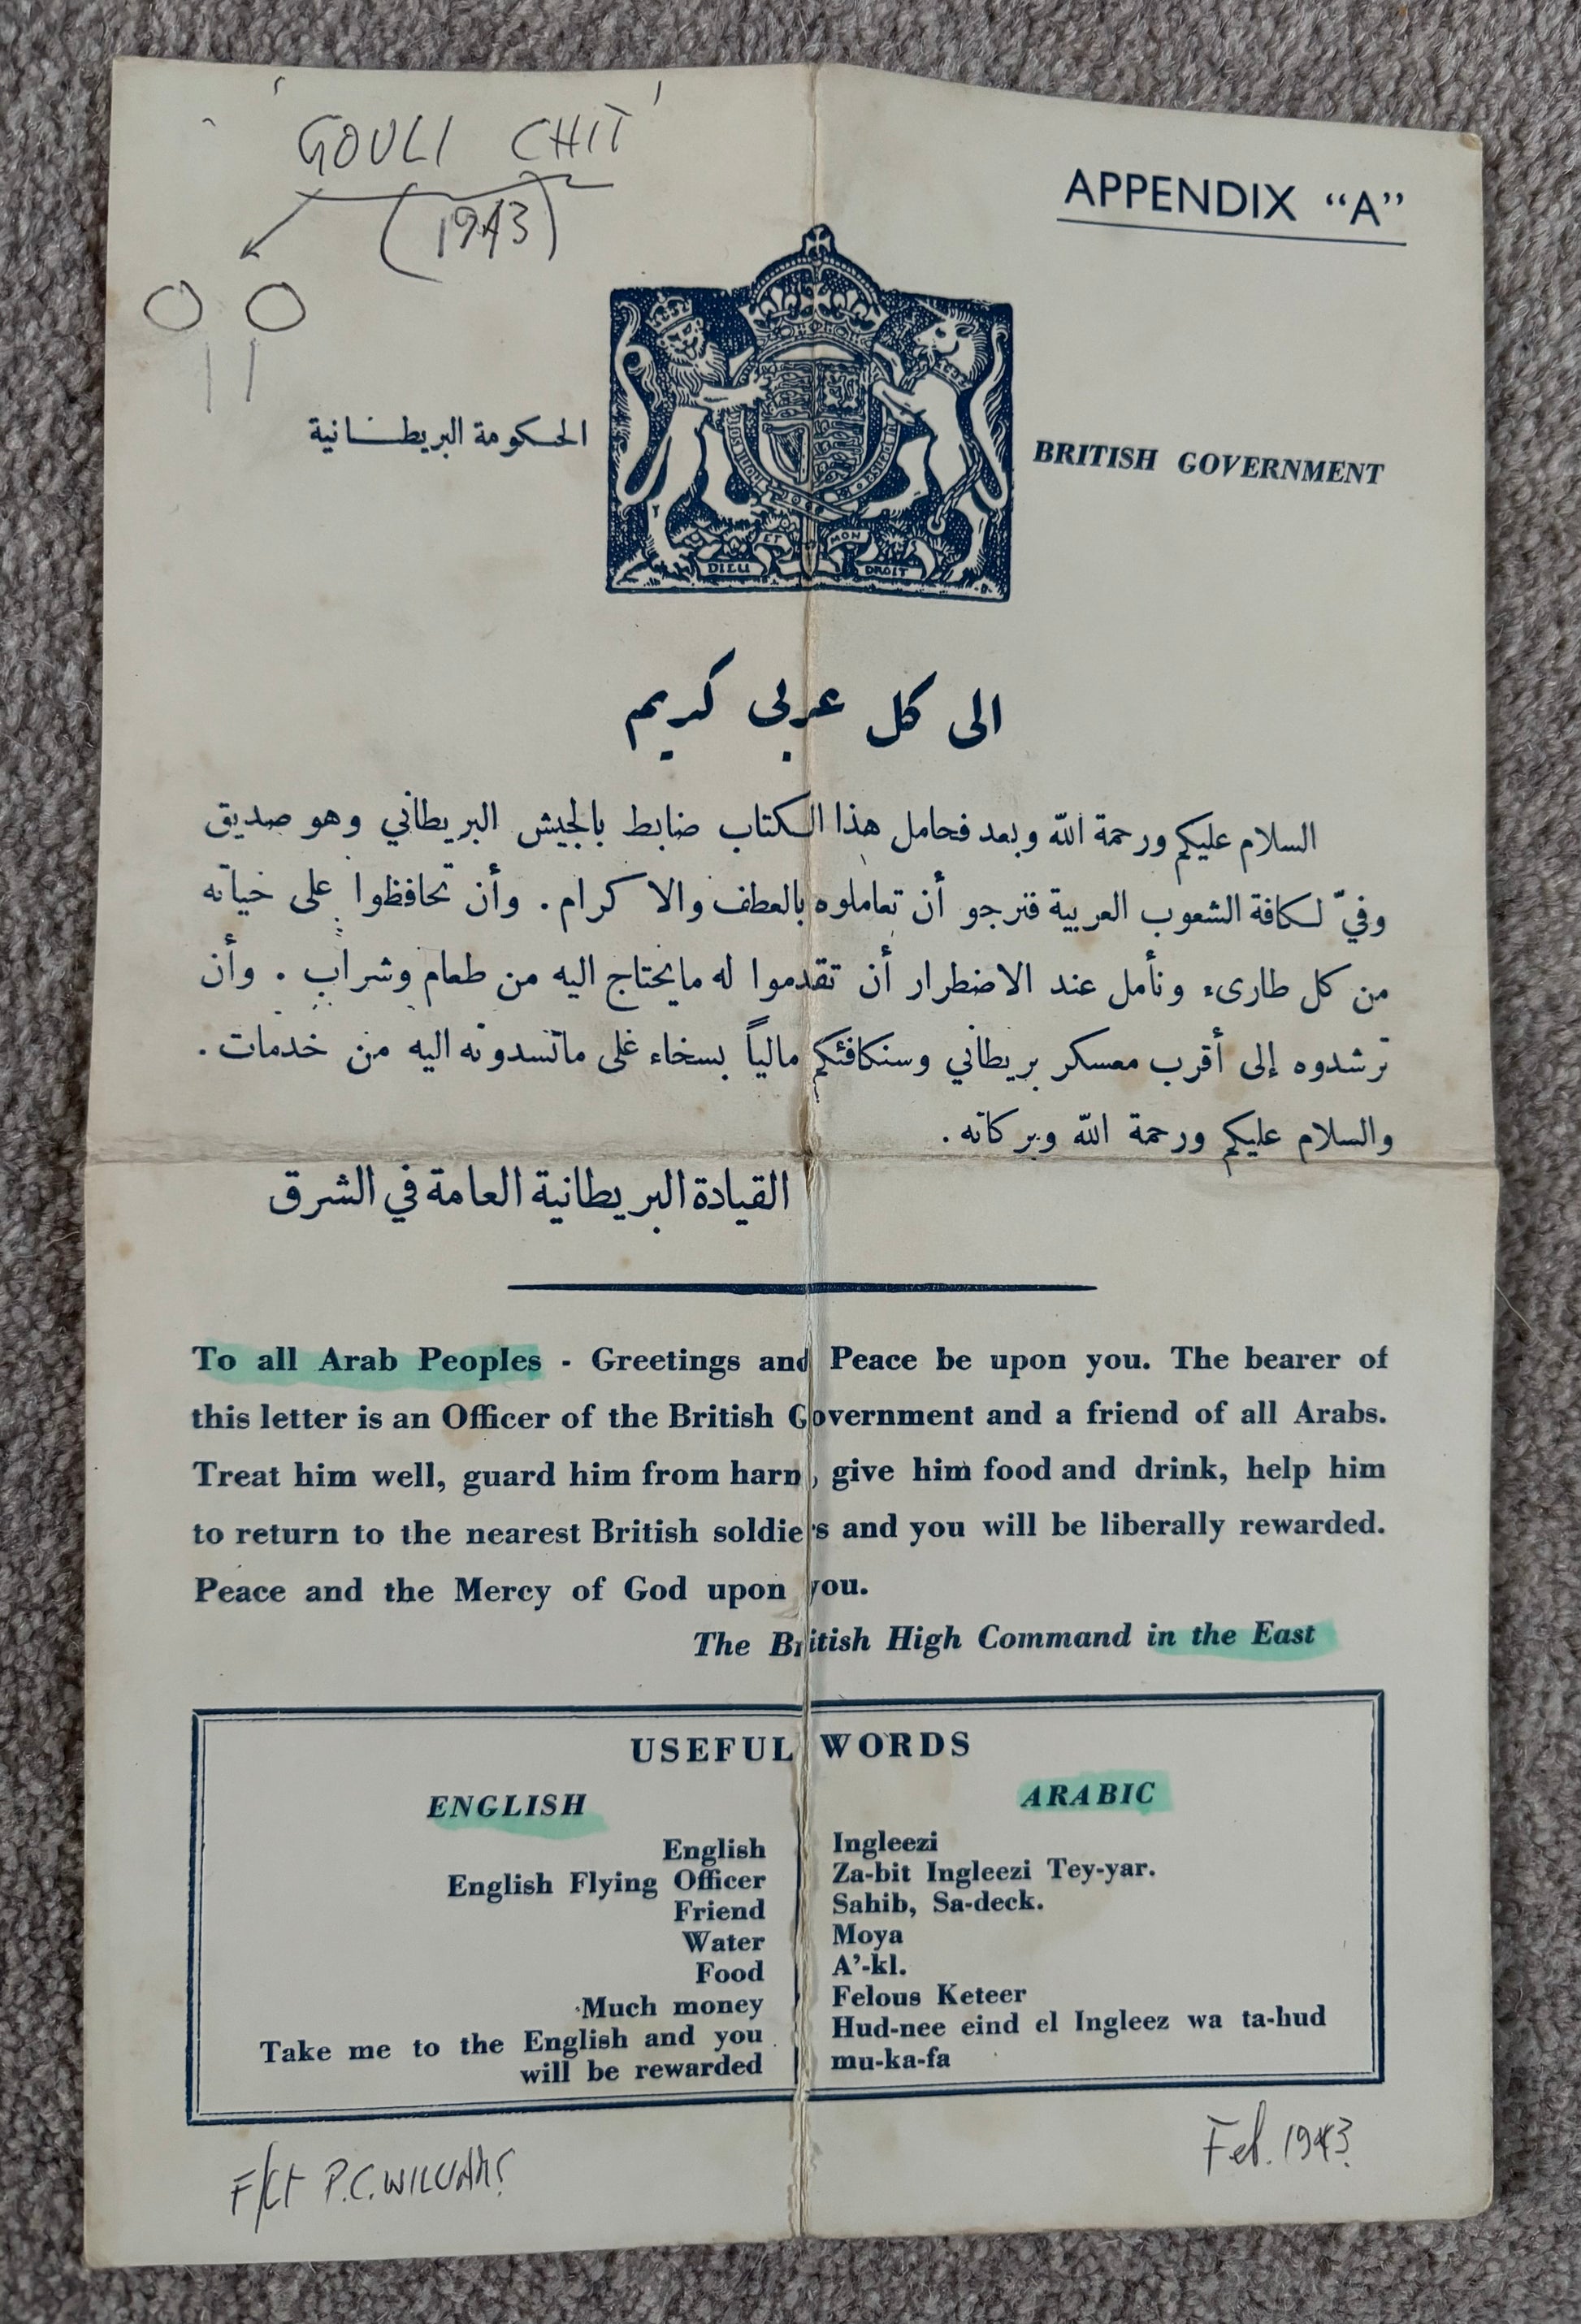 'GOULI CHIT'
(1943)
APPENDIX "A"
الحكومة البريطانية
BRITISH GOVERNMENT
DIEU ET MON DROIT
الى كل عربى كريم
السلام عليكم ورحمة الله وبعد فحامل هذا الكتاب ضابط بالجيش البريطاني وهو صديق
وفيّ لكافة الشعوب العربية فنرجو أن تعاملوه بالعطف والاكرام. وأن تحافظوا على حياته
من كل طارىء ونأمل عند الاضطرار أن تقدموا له مايحتاج اليه من طعام وشراب. وأن
ترشدوه إلى أقرب معسكر بريطاني وسنكافئكم مالياً بسخاء على ماتسدونه اليه من خدمات.
والسلام عليكم ورحمة الله وبركاته.
القيادة البريطانية العامة في الشرق
To all Arab Peoples - Greetings and Peace be upon you. The bearer of
this letter is an Officer of the British Government and a friend of all Arabs.
Treat him well, guard him from harm, give him food and drink, help him
to return to the nearest British soldiers and you will be liberally rewarded.
Peace and the Mercy of God upon you.
The British High Command in the East
USEFUL WORDS
ENGLISH ARABIC
English Ingleezi
English Flying Officer Za-bit Ingleezi Tey-yar.
Friend Sahib, Sa-deck.
Water Moya
Food A'-kl.
Much money Felous Keteer
Take me to the English and you Hud-nee eind el Ingleez wa ta-hud
will be rewarded mu-ka-fa
F/Lt P.C. WILLIAMS
Feb. 1943